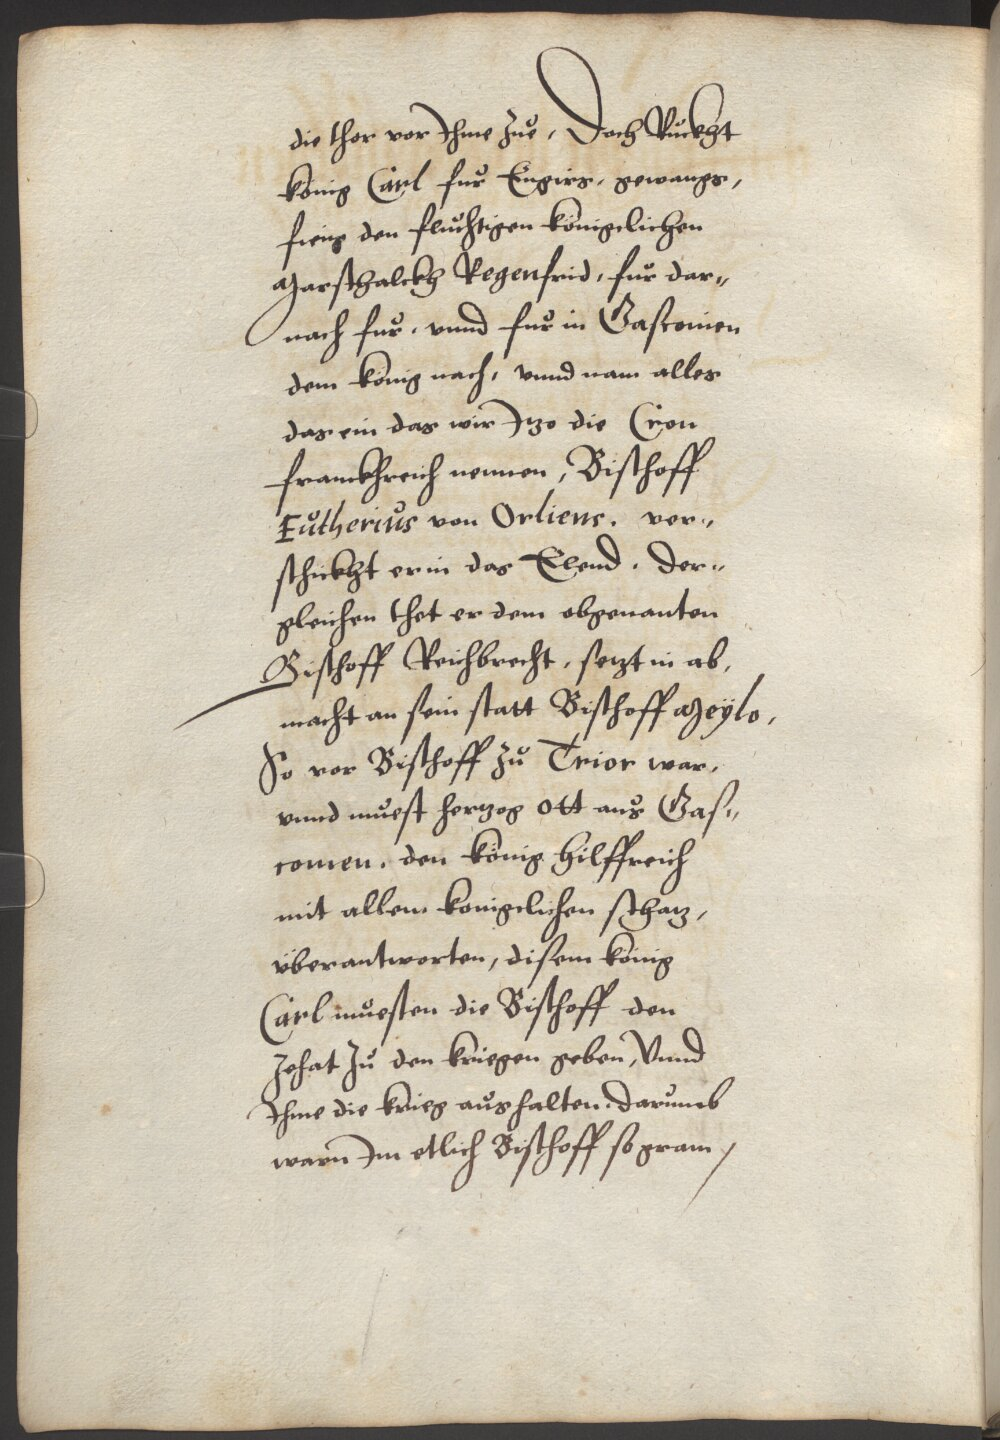 die thor vor Ihme zue, Doch Ruckht
könig Carl fur Engirs, gewangs,
fieng den fluchtigen königelichen
Marschalckh Regenfrid, fur dar„
nach fur, vnnd fur in Gasconien
dem könig nach, vnnd nam alles
das ein das wir Itzo die Cron
franckhreich nennen, Bischoff
Eutherius von Orliens, ver„
schickht er in das Elend, der„
gleichen thet er dem obgenanten
Bischoff Reichbrecht, setzt in ab,
macht an sein statt Bischoff Meÿlo,
So vor Bischoff zu Trier war,
vnnd muest hertzog Ott aus Gas„
conien, den könig Hilffreich
mit allem konigelichen schatz,
vberantworten, disem könig
Carl muesten die Bischoff den
zehat zu den kriegen geben, Vnnd
Ihme die krieg aushalten, darumb
warn Im etlich Bischoff so gram,